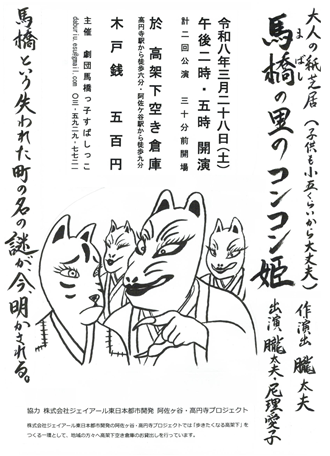 大人の紙芝居（子供も小五くらいから大丈夫）
馬橋の里のコンコン姫
まばし
作・演出 朧太夫
出演 朧太夫・尼理愛子
令和八年三月二十八日（土）
午後二時・五時 開演
計二回公演 三十分前開場
於 高架下空き倉庫
高円寺駅から徒歩六分・阿佐ケ谷駅から徒歩九分
木戸銭 五百円
主催 劇団馬橋っ子すばしっこ
〇三・五九二九・七七二一
馬橋という失われた町の名の謎が、今、明かされる。
協力 株式会社ジェイアール東日本都市開発 阿佐ヶ谷・高円寺プロジェクト
株式会社ジェイアール東日本都市開発の阿佐ヶ谷・高円寺プロジェクトでは「歩きたくなる高架下」を
つくる一環として、地域の方々へ高架下空き倉庫のお貸出しを行っています。